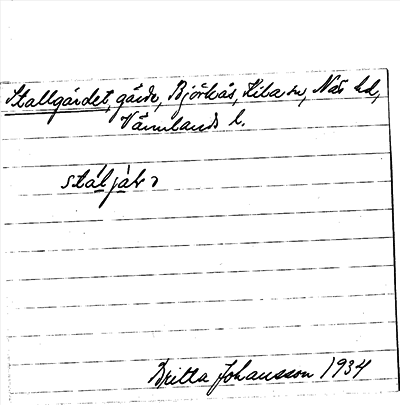 Stallgärdet, gärde, Björkås, Kila sn, Näs hd,
Värmlands l.
stáljàḷə
Britta Johansson 1934